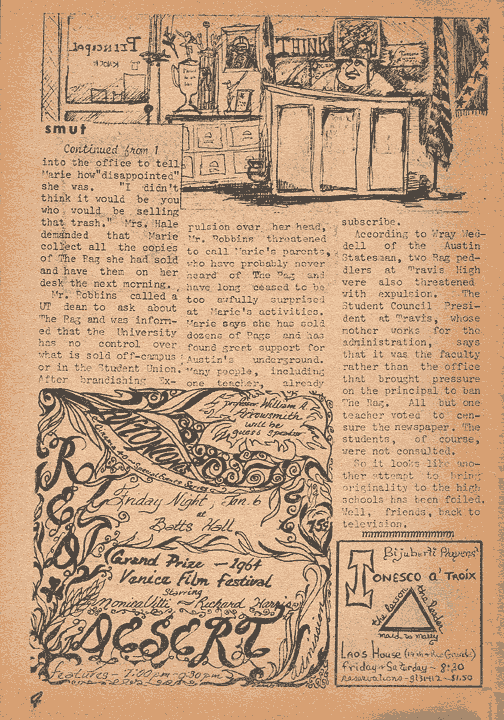 Principal
KNOCK
THINK
smut
Continued from 1
into the office to tell
Marie how "disappointed"
she was. "I didn't
think it would be you
who would be selling
that trash." Mrs. Hale
demanded that Marie
collect all the copies
of The Rag she had sold
and have them on her
desk the next morning.
Mr. Robbins called a
UT dean to ask about
The Rag and was inform-
ed that the University
has no control over
what is sold off-campus
or in the Student Union.
After brandishing Ex-
pulsion over her head,
Mr. Robbins threatened
to call Marie's parents,
who have probably never
heard of The Rag and
have long ceased to be
too awfully surprised
at Marie's activities.
Marie says she has sold
dozens of Rags and has
found great support for
Austin's underground.
Many people, including
one teacher, already
subscribe.
According to Wray Wed-
dell of the Austin
Statesman, two Rag ped-
dlers at Travis High
were also threatened
with expulsion. The
Student Council Presi-
dent at Travis, whose
mother works for the
administration, says
that it was the faculty
rather than the office
that brought pressure
on the principal to ban
The Rag. All but one
teacher voted to cen-
sure the newspaper. The
students, of course,
were not consulted.
So it looks like ano-
ther attempt to bring
originality to the high
schools has been foiled.
Well, friends, back to
television.
Professor William
Arrowsmith
will be
guest speaker
Friday Night, Jan. 6
at
Batts Hall
Grand Prize - 1964
Venice Film Festival
Starring
Monica Vitti - Richard Harris
RED
DESERT
Admission
75¢
features - 7:00 pm - 9:30 pm
IONESCO A' TROIX
the lesson
the leader
maid to marry
Laos House
Friday & Saturday - 8:30
reservations - $1.50
4